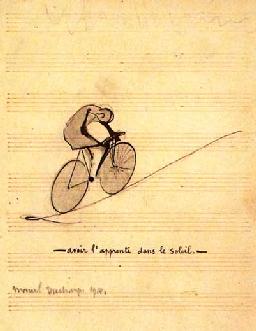 — avoir l'apprenti dans le soleil. —
Marcel Duchamp